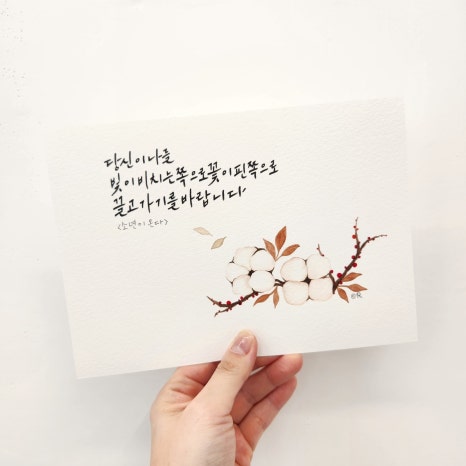 당신이 나를
빛이 비치는 쪽으로 꽃이 핀 쪽으로
끌고 가기를 바랍니다
<소년이 온다>